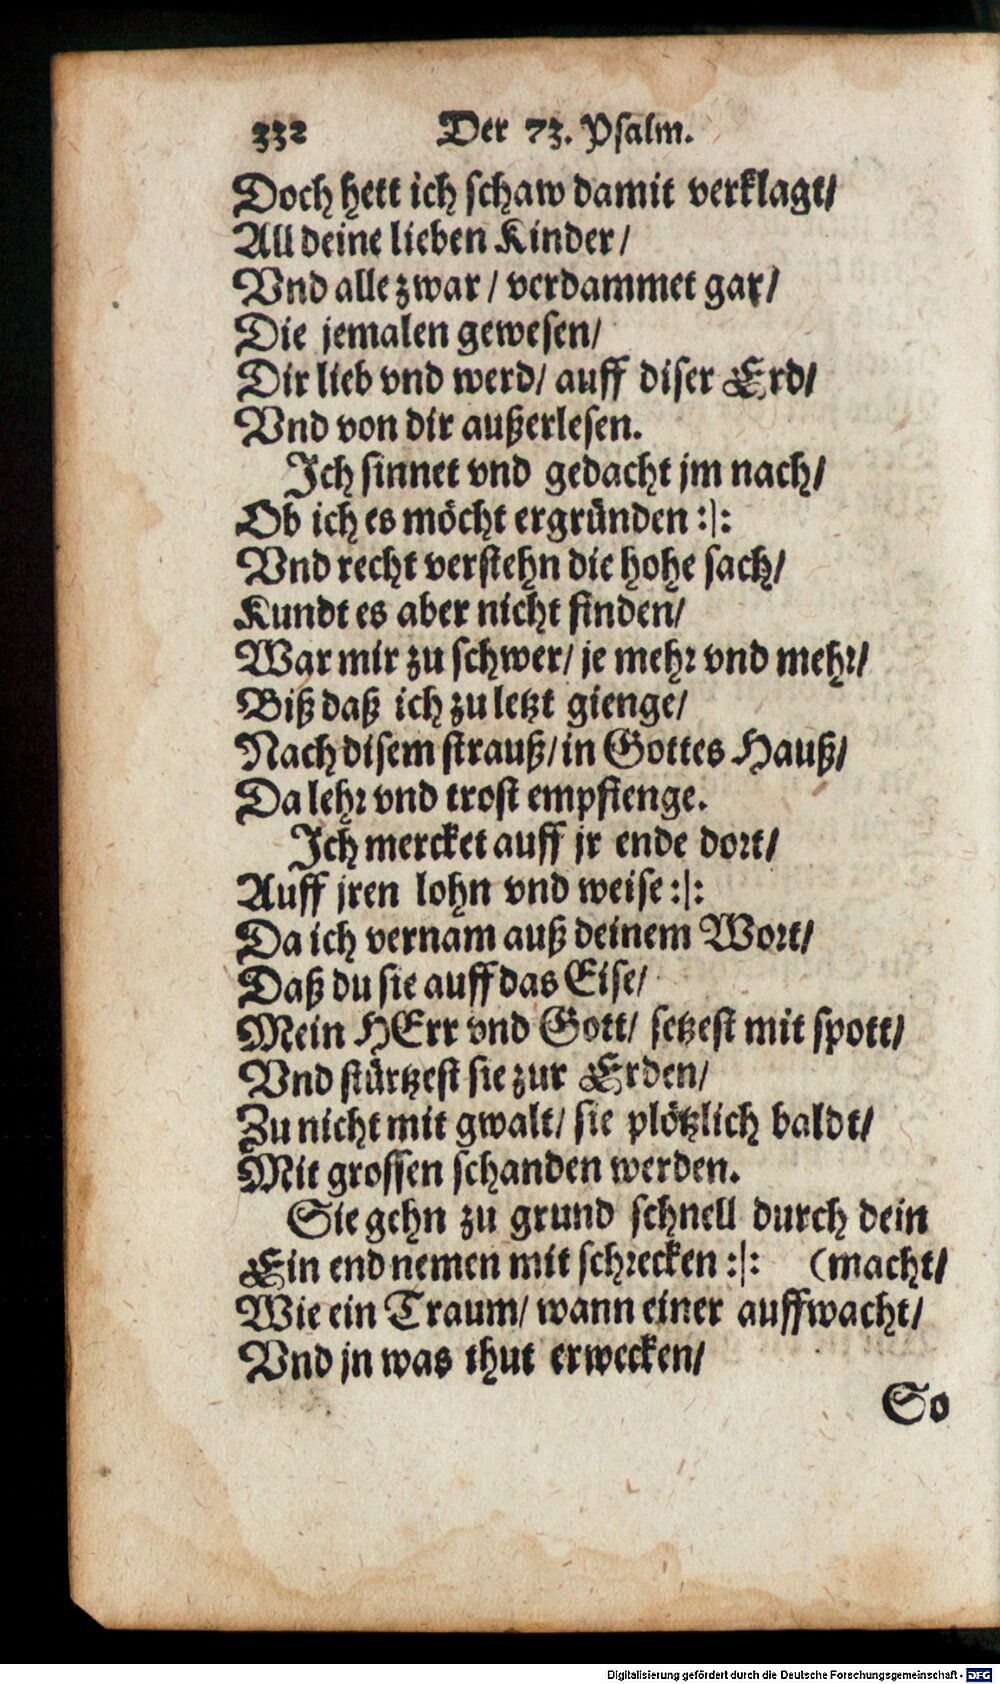 332 Der 73. Psalm.
Doch hett ich schaw damit verklagt/
All deine lieben Kinder/
Vnd alle zwar/ verdammet gar/
Die jemalen gewesen/
Dir lieb vnd werd/ auff diser Erd/
Vnd von dir außerlesen.
Ich sinnet vnd gedacht jm nach/
Ob ich es möcht ergründen :|:
Vnd recht verstehn die hohe sach/
Kundt es aber nicht finden/
War mir zu schwer/ je mehr vnd mehr/
Biß daß ich zu letzt gienge/
Nach disem strauß/ in Gottes Hauß/
Da lehr vnd trost empfienge.
Ich mercket auff jr ende dort/
Auff jren lohn vnd weise :|:
Da ich vernam auß deinem Wort/
Daß du sie auff das Eise/
Mein HErr vnd Gott/ setzest mit spott/
Vnd stürtzest sie zur Erden/
Zu nicht mit gwalt/ sie plötzlich baldt/
Mit grossen schanden werden.
Sie gehn zu grund schnell durch dein
Ein end nemen mit schrecken :|: (macht/
Wie ein Traum/ wann einer auffwacht/
Vnd jn was thut erwecken/
So
Digitalisierung gefördert durch die Deutsche Forschungsgemeinschaft - DFG